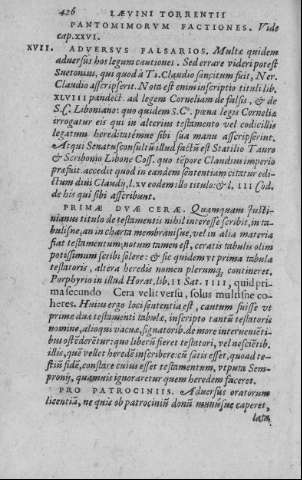 426 LÆVINI TORRENTII
PANTOMIMORVM FACTIONES. Vide
cap. XXVI.
XVII. ADVERSVS FALSARIOS. Multæ quidem
aduersus hos legum cautiones. Sed errare videri potest
Suetonius, qui quod à Ti. Claudio sancitum fuit, Ner.
Claudio asscripserit. Nota est enim inscriptio tituli lib.
XLVIII pandect. ad legem Corneliam de falsis, & de
S.C. Liboniano: quo quidem S.C. pœna legis Corneliæ
irrogatur eis qui in alterius testamento vel codicillis
legatum hereditatémue sibi sua manu asscripserint.
Atqui Senatusconsultũ illud factũ est Statilio Tauro
& Scribonio Libone Coss. quo tẽpore Claudius imperio
præfuit. accedit quod in eandem sententiam citatur edi-
ctum diui Claudij, l. xv eodem illo titulo: & l. III Cod.
de his qui sibi asscribunt.
PRIMÆ DVÆ CERÆ. Quamquam Iusti-
nianus titulo de testamentis nihil interesse scribit, in ta-
bulisne, an in charta membranísue, vel in alia materia
fiat testamentum; notum tamen est, ceratis tabulis olim
potissimum scribi solere: & sic quidem vt prima tabula
testatoris, altera heredis nomen plerumq; contineret.
Porphyrio in illud Horat. lib. II Sat. IIII, quid pri-
ma secundo Cera velit versu, solus multisne co-
heres. Huius ergo loci sententia est, cautum fuisse vt
primæ duæ testamenti tabulæ, inscripto tantũ testatoris
nomine, alioqui vacuæ, signatorib. de more interueniẽti-
bus ostẽderẽtur: quo liberũ fieret testatori, vel nesciẽtib.
illis, quẽ vellet heredẽ inscribere: cũ satis esset, quoad te-
stiũ fidẽ, constare cuius esset testamentum, vtputa Sem-
pronij, quamuis ignoraretur quem heredem faceret.
PRO PATROCINIIS. Aduersus oratorum
licentiã, ne quis ob patrociniũ donũ munúsue caperet,
lata